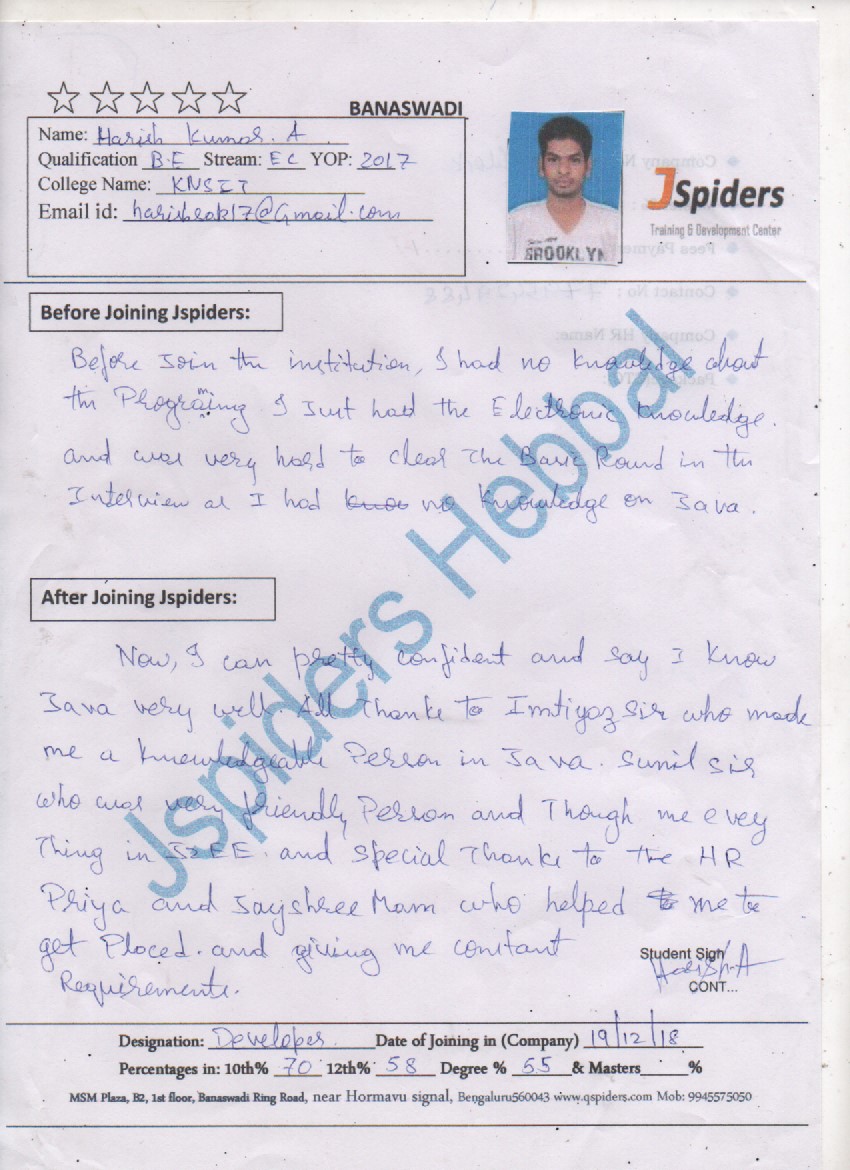 BANASWADI
Name: Harish Kumar. A
Qualification B.E Stream: EC YOP: 2017
College Name: KNSIT
Email id: harishsak17@Gmail.com
JSpiders
Training & Development Center
BROOKLYN
Before Joining Jspiders:
Before Join the institution, I had no knowledge about
the Programing. I Just had the Electronic knowledge.
and was very hard to clear The Basic Round in the
Interview as I had no knowledge on Java.
After Joining Jspiders:
Now, I can pretty confident and say I know
Java very well. All Thanks to Imtiyaz sir who made
me a knowledgeable Person in Java. Sunil sir
who was very friendly Person and Though me evey
Thing in J2EE. and special Thanks to the HR
Priya and Jayshree Mam who helped me to
get Placed. and giving me constant
Requirements.
Jspiders Hebbal
Student Sign
Harish.A
CONT...
Designation: Developer Date of Joining in (Company) 19/12/18
Percentages in: 10th% 70 12th% 58 Degree % 55 & Masters %
MSM Plaza, B2, 1st floor, Banaswadi Ring Road, near Hormavu signal, Bengaluru560043 www.qspiders.com Mob: 9945575050